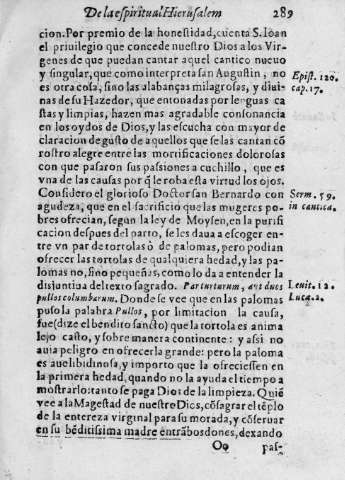 De la espiritual Hierusalem 289
cion. Por premio de la honestidad, cuenta S. Ioan
el priuilegio que concede nuestro Dios a los Vir-
genes de que puedan cantar aquel cantico nueuo
y singular, que como interpreta san Augustin, no
es otra cosa, sino las alabanças milagrosas, y diui-
nas de su Hazedor, que entonadas por lenguas ca
stas y limpias, hazen mas agradable consonancia
en los oydos de Dios, y las escucha con mayor de
claracion de gusto de aquellos que se las cantan cõ
rostro alegre entre las mortificaciones dolorosas
con que pasaron sus passiones a cuchillo, que es
vna de las causas por q̃ le roba esta virtud los ojos.
Considero el glorioso Doctor san Bernardo con
agudeza, que en el sacrificio que las mugeres po
bres ofrecian, segun la ley de Moysen, en la purifi
cacion despues del parto, se les daua a escoger en-
tre vn par de tortolas ò de palomas, pero podian
ofrecer las tortolas de qualquiera hedad, y las pa
lomas no, sino pequeñas, como lo da a entender la
disiuntiua del texto sagrado. Par turturum, aut duos
pullos columbarum. Donde se vee que en las palomas
puso la palabra Pullos, por limitacion la causa,
fue (dize el bendito sancto) que la tortola es anima
lejo casto, y sobre manera continente: y assi no
auia peligro en ofrecerla grande: pero la paloma
es aue libidinosa, y importo que la ofreciessen en
la primera hedad, quando no la ayuda el tiempo a
mostrarlo: tanto se paga Dios de la limpieza. Quiẽ
vee a la Magestad de nuestro Dios, cõsagrar el tẽplo
de la entereza virginal para su morada, y cõseruar
en su bẽditissima madre entrãbos dones, dexando
Oo pas-
Epist. 120.
cap. 17.
Serm. 59.
in cantica.
Leuit. 12.
Luca. 2.